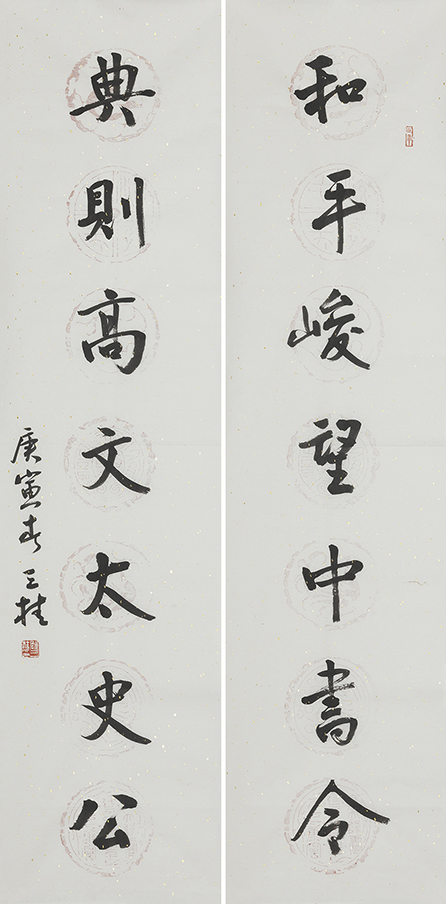 和平峻望中書令
典則高文太史公
庚寅春三桂